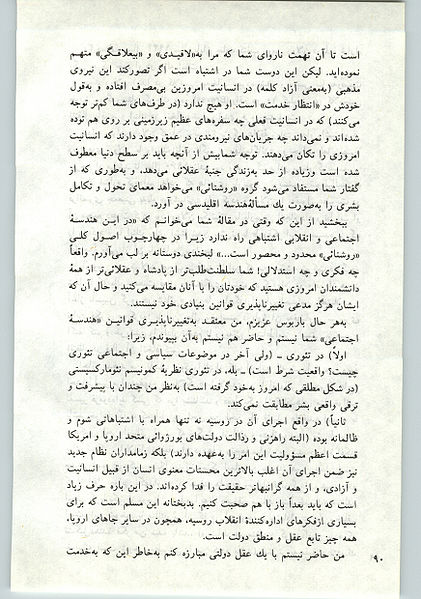 است تا آن تهمت ناروای شما که مرا به«لاقیدی» و «بیعلاقگی» متهم
نموده‌اید. لیکن این دوست شما در اشتباه است اگر تصورکند این نیروی
مذهبی (به‌معنی آزاد کلمه) در انسانیت امروزین بی‌مصرف افتاده و به‌قول
خودش در «انتظار خدمت» است. او هیچ ندارد (در طرف‌های شما کم‌تر توجه
می‌کنند) که در انسانیت فعلی چه سفره‌های عظیم زیرزمینی بر روی هم توده
شده‌اند و نمی‌داند چه جریان‌های نیرومندی در عمق وجود دارند که انسانیت
امروزی را تکان می‌دهند. توجه شمابیش از آنچه باید بر سطح دنیا معطوف
شده است وزیاده از حد به‌زندگی جنبهٔ عقلائی می‌دهد، و به‌طوری که از
گفتار شما مستفاد می‌شود گروه «روشنائی» می‌خواهد معمای تحول و تکامل
بشری را به‌صورت یك مسألهٔ هندسه اقلیدسی در آورد.
ببخشید از این که وقتی در مقالهٔ شما می‌خوانم که «در این هندسهٔ
اجتماعی و انقلابی اشتباهی راه ندارد زیـرا در چهارچـوب اصـول کلـی
«روشنائی» محدود و محصور است...» لبخندی دوستانه بر لب می‌آورم. واقعاً
چه فکری و چه استدلالی! شما سلطنت‌طلب‌تر از پادشاه و عقلائی‌تر از همهٔ
دانشمندان امروزی هستید که خودتان را با آنان مقایسه می‌کنید و حال آن که
ایشان هرگز مدعی تغییرناپذیری قوانین بنیادی خود نیستند.
به‌هر حال باربوس عزیزم، من معتقـد به‌تغییرناپذیـری قوانیـن «هندسـهٔ
اجتماعی» شما نیستم و حاضر هم نیستم به‌آن بپیوندم، زیرا:
اولاً) در تئوری ـ (ولی آخر در موضوعات سیاسی و اجتماعی تئوری
چیست؟ واقعیت شرط است) ـ بله، در تئوری نظریهٔ کمونیسم نئومارکسیستی
(در شکل مطلقی که امروز به‌خود گرفته است) به‌نظر من چندان با پیشرفت و
ترقی واقعی بشر مطابقت نمی‌کند.
ثانیاً) در واقع اجرای آن در روسیه نه تنها همراه با اشتباهاتی شوم و
ظالمانه بوده (البته راهزنی و رذالت دولت‌های بورژوائی متحد اروپا و امریکا
قسمت اعظم مسؤولیت این امر را به‌عهده دارند) بلکه زمامداران نظام جدید
نیز ضمن اجرای آن اغلب بالاترین محسنات معنوی انسان از قبیل انسانیت
و آزادی، و از همه گرانبهاتر حقیقت را فدا کرده‌اند. در این باره حرف زیاد
است که باید بعداً باز با هم صحبت کنیم. بدبختانه این مسلم است که برای
بسیاری ازفکرهای اداره‌کنندهٔ انقلاب روسیه، همچون در سایر جاهای اروپا،
همه چیز تابع عقل و منطق دولت است.
من حاضر نیستم با یك عقل دولتی مبارزه کنم به‌خاطر این که به‌خدمت
۹۰